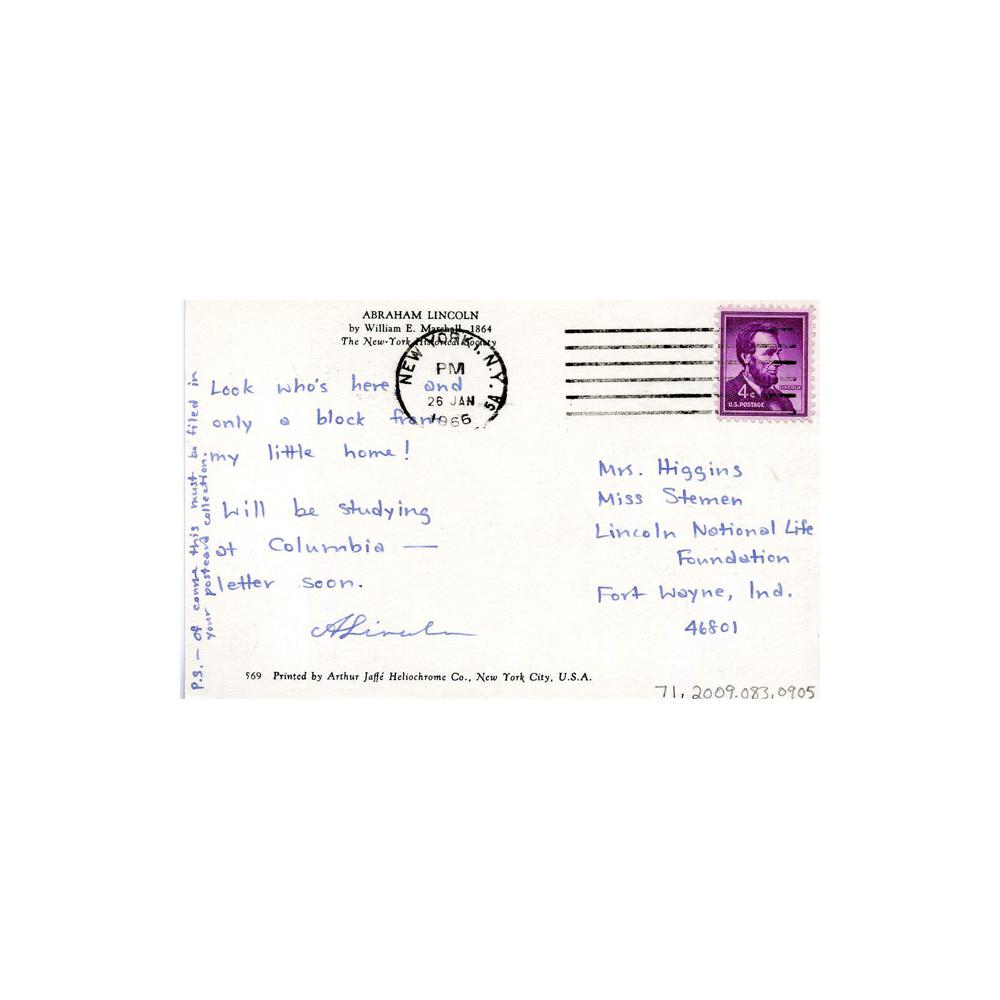 ABRAHAM LINCOLN
by William E. Marshall, 1864
The New-York Historical Society
NEW YORK, N.Y. 5A
PM
26 JAN
1966
4¢
LINCOLN
U.S. POSTAGE
Look who's here and
only a block from
my little home!
Will be studying
at Columbia —
letter soon.
ALincoln
P.S. — Of course this must be filed in
your postcard collection.
Mrs. Higgins
Miss Stemen
Lincoln National Life
Foundation
Fort Wayne, Ind.
46801
569 Printed by Arthur Jaffé Heliochrome Co., New York City, U.S.A.
71.2009.083.0905